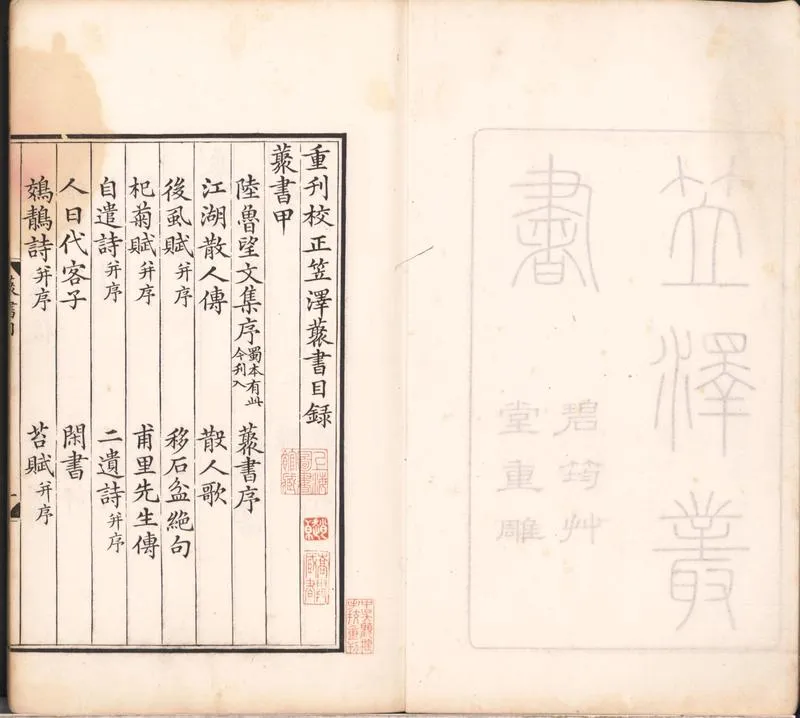 笠澤叢
書
碧筠艸
堂重雕
重刊校正笠澤藂書目録
藂書甲
陸魯望文集序蜀本有此今刊入 藂書序
江湖散人傳 散人歌
後虱賦并序 移石盆絶句
杞菊賦并序 甫里先生傳
自遣詩并序 二遺詩并序
人日代客子 閑書
鴳鶄詩并序 苔賦并序